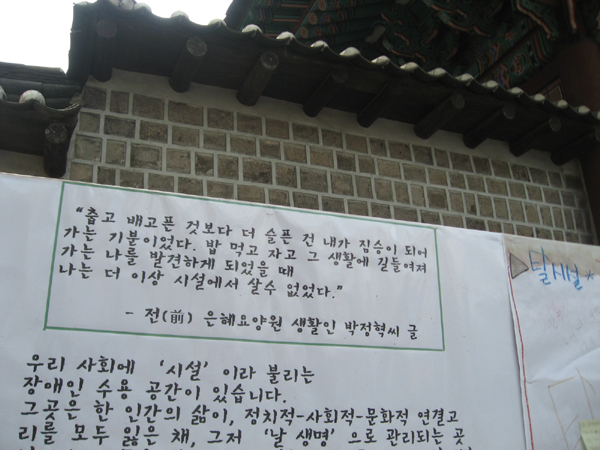 "춥고 배고픈 것보다 더 슬픈 건 내가 짐승이 되어
가는 기분이었다. 밥 먹고 자고 그 생활에 길들여져
가는 나를 발견하게 되었을 때
나는 더 이상 시설에서 살수 없었다."
- 전(前) 은혜요양원 생활인 박정혁씨 글
우리 사회에 '시설' 이라 불리는
장애인 수용 공간이 있습니다.
그곳은 한 인간의 삶이, 정치적-사회적-문화적 연결고
리를 모두 잃은 채, 그저 '날 생명' 으로 관리되는 곳
▷탈시설*